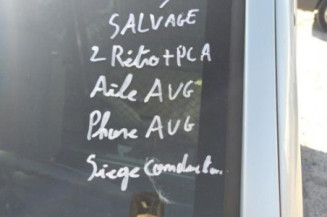 SALVAGE
2 Rétro + PCA
Aile AVG
Phare AVG
Siege Conducteur